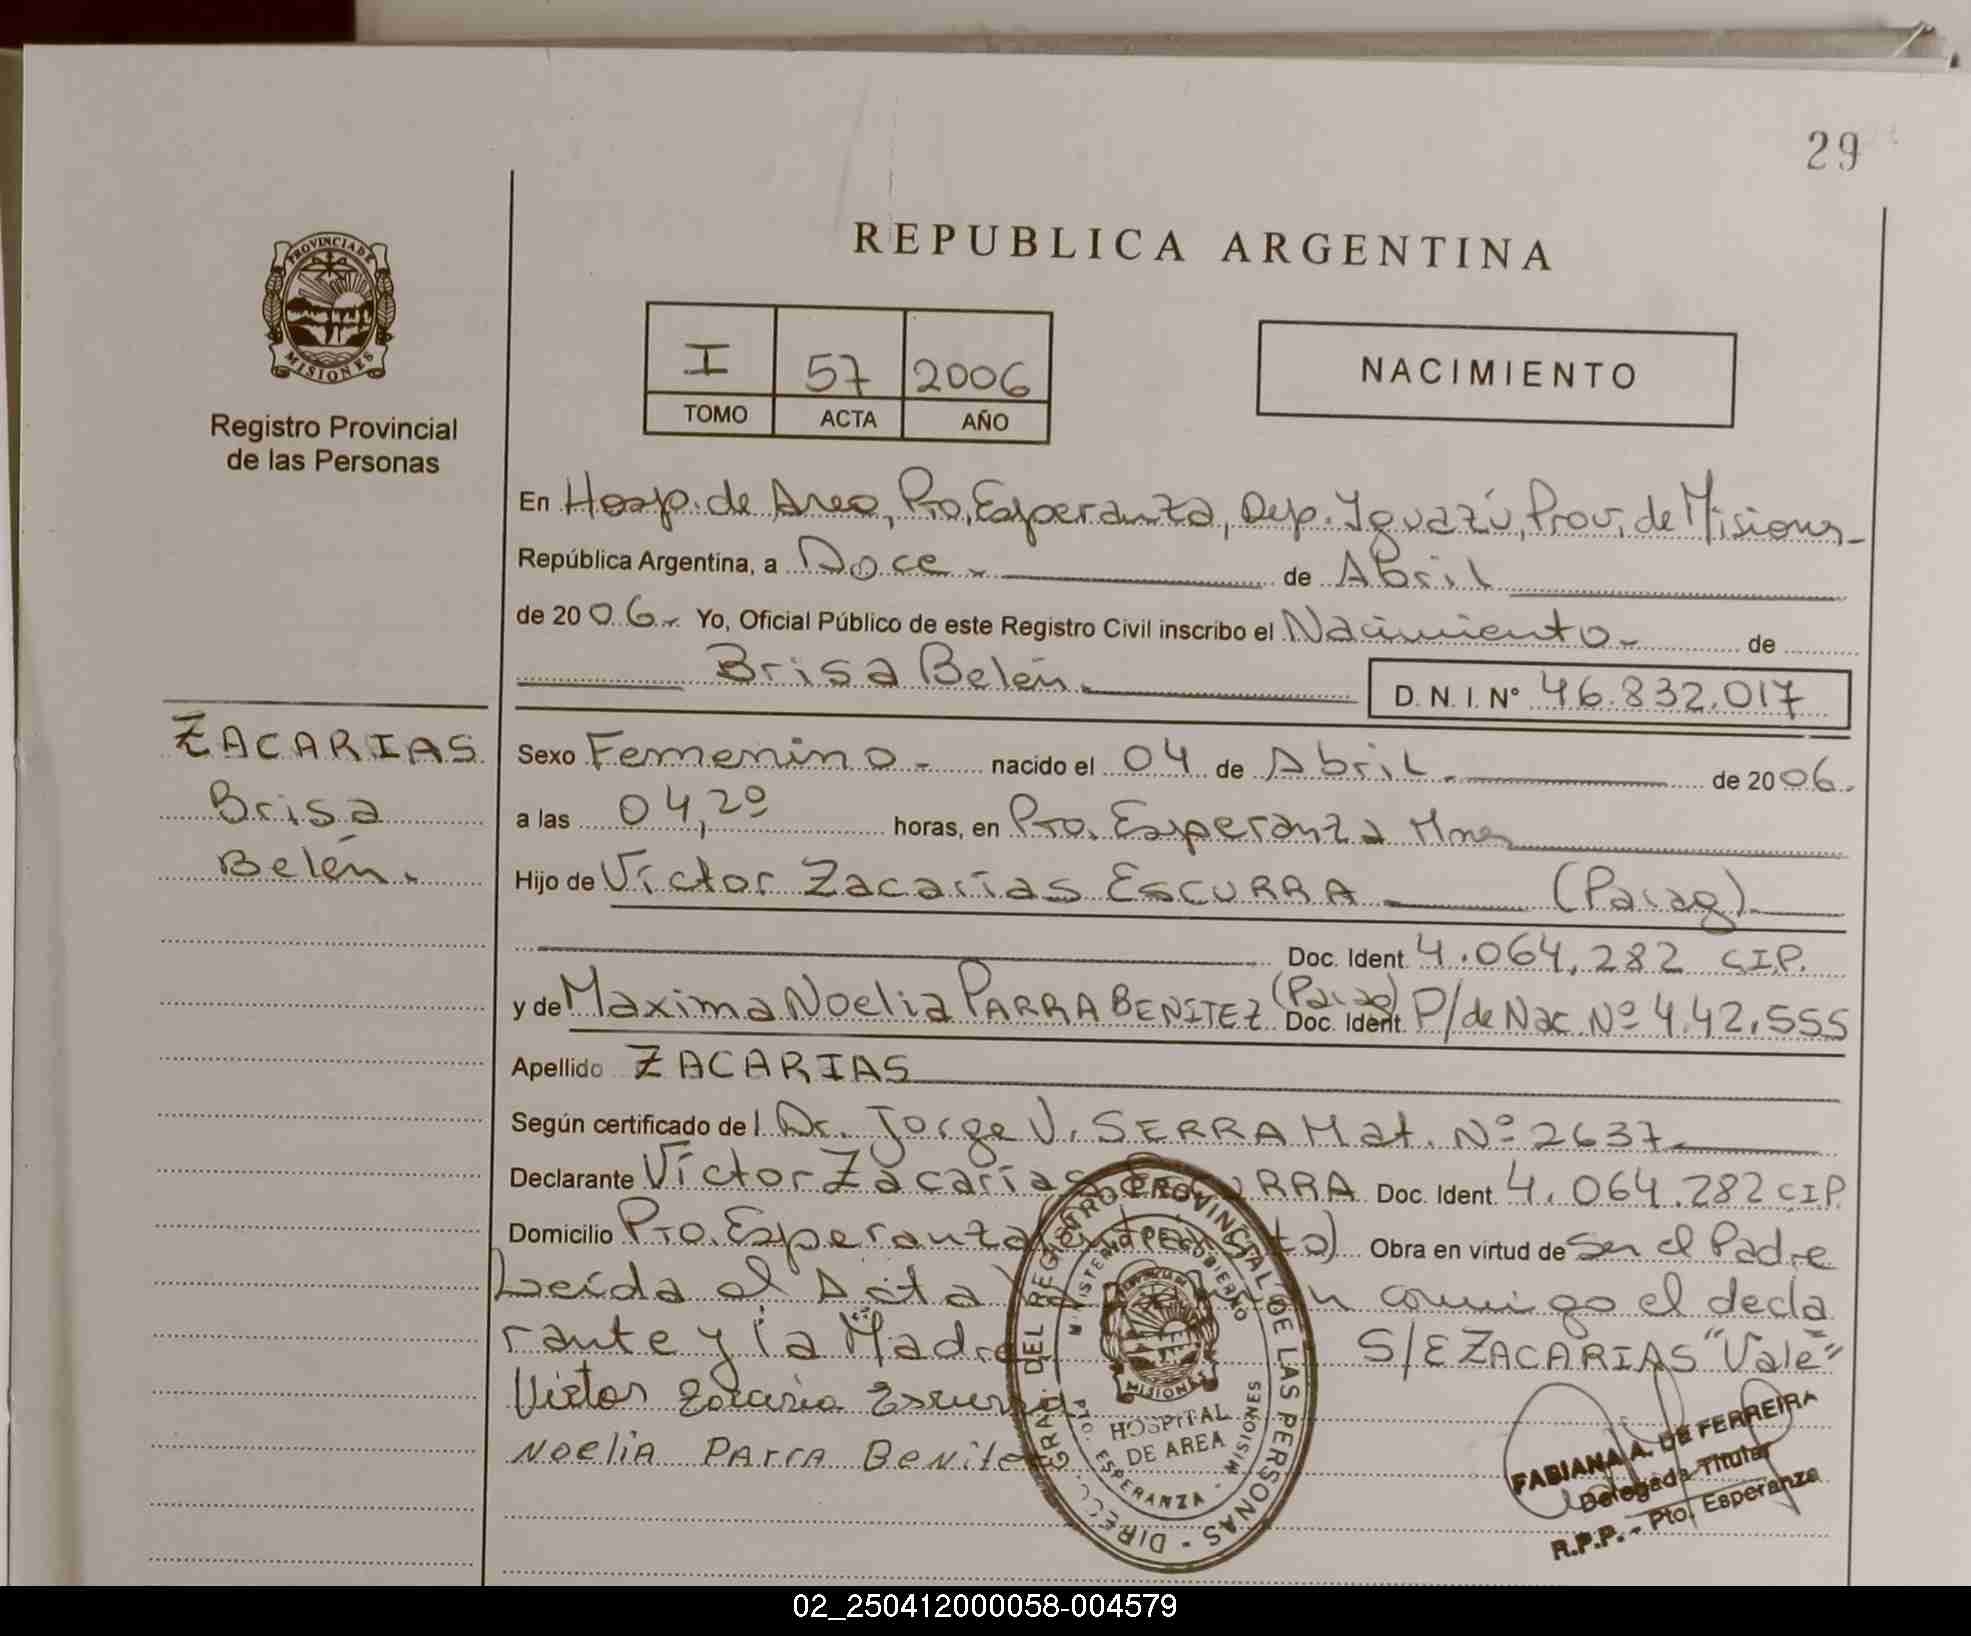 29
PROVINCIA DE
MISIONES
Registro Provincial
de las Personas
REPUBLICA ARGENTINA
I 57 2006
TOMO ACTA AÑO
NACIMIENTO
En Hosp. de Area, Pto. Esperanza, Dep. Iguazú, Prov. de Misiones
República Argentina, a Doce de Abril
de 2006. Yo, Oficial Público de este Registro Civil inscribo el Nacimiento de
Brisa Belén. D. N. I. N° 46.832.017
ZACARIAS
Brisa
Belén.
Sexo Femenino nacido el 04 de Abril de 2006.
a las 04,20 horas, en Pto. Esperanza Mnes
Hijo de Víctor Zacarías ESCURRA (Parag)
Doc. Ident. 4.064.282 C.I.P.
y de Maxima Noelia PARRA BENITEZ (Parag) Doc. Ident. P/de Nac. Nº 4.42.555
Apellido ZACARIAS
Según certificado del Dr. Jorge V. SERRA Mat. Nº 2637
Declarante Víctor Zacarías ESCURRA Doc. Ident. 4.064.282 CIP.
Domicilio Pto. Esperanza Obra en virtud de Ser el Padre
Leída el Acta conmigo el decla
rante y la Madre S/E ZACARIAS "Vale"
Victor Zacaria Escurra
Noelia Parra Benite
DIRECC. GRAL. DEL REGISTRO PROVINCIAL DE LAS PERSONAS
MINISTERIO DE GOBIERNO
MISIONES
HOSPITAL
DE AREA
PTO. ESPERANZA - MISIONES
FABIANA A. DE FERREIRA
Delegada Titular
R.P.P. - Pto. Esperanza
02_250412000058-004579